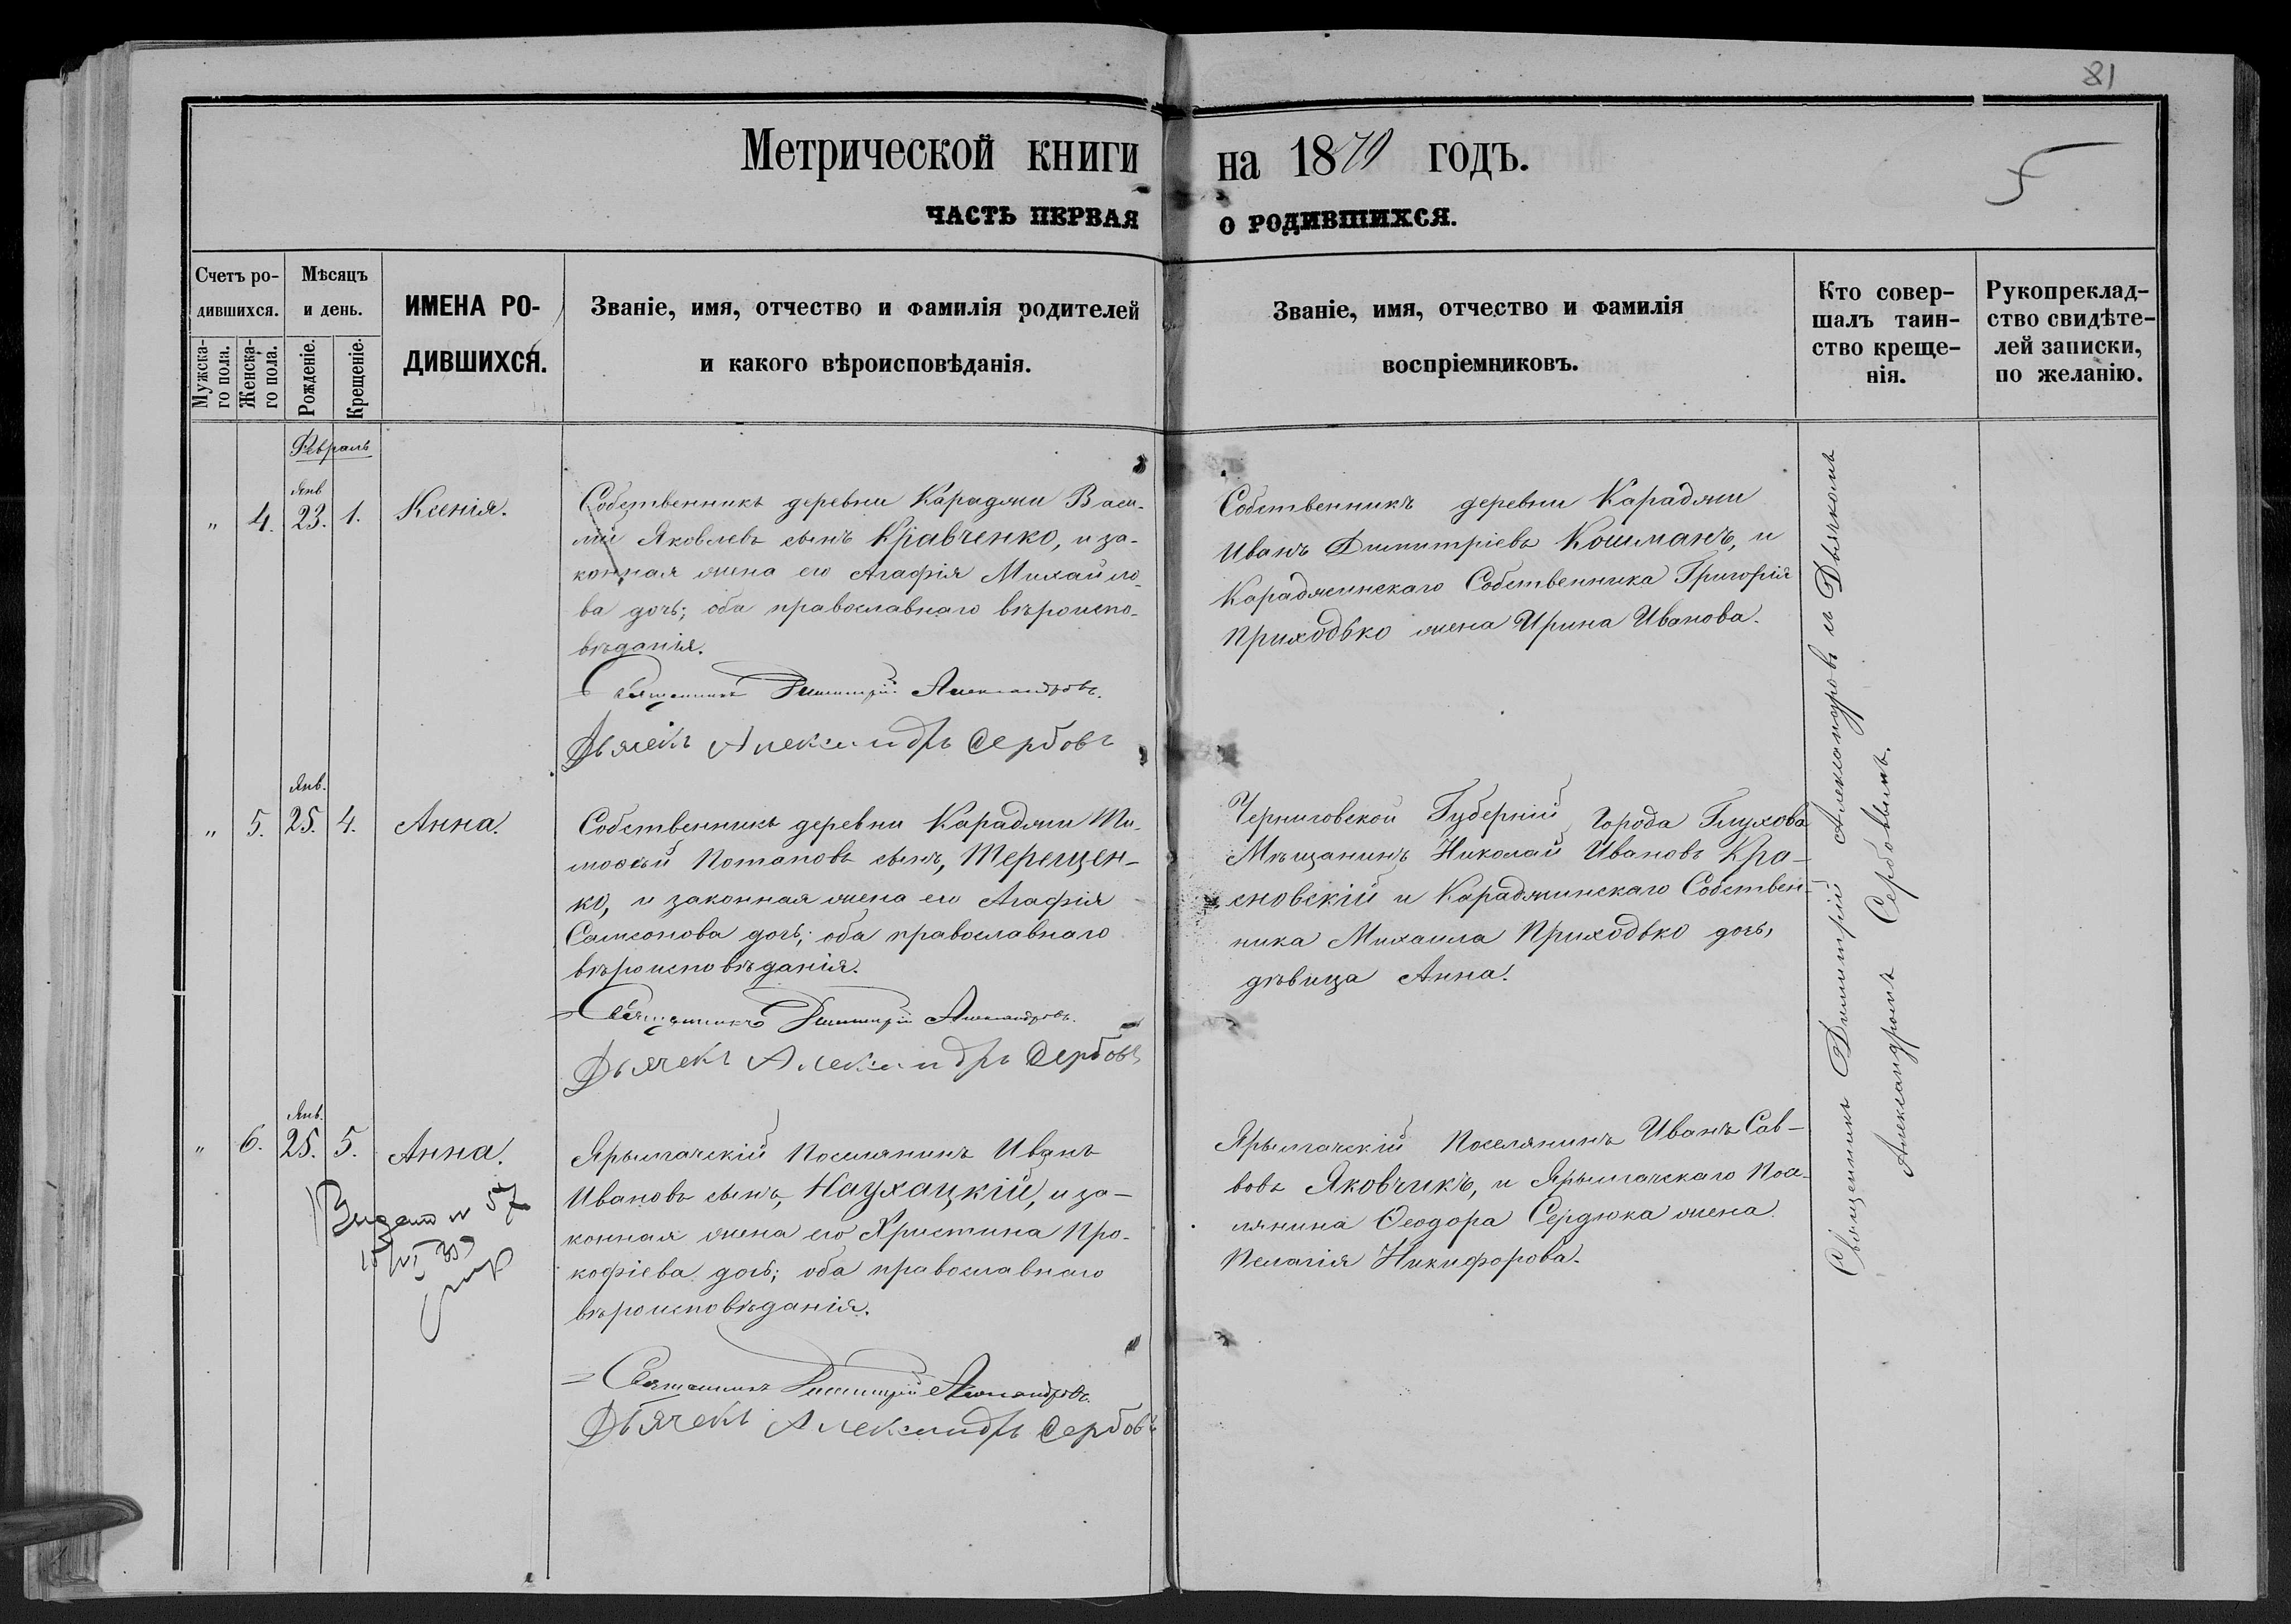 81
Метрической книги на 1870 годъ.
5
ЧАСТЬ ПЕРВАЯ О РОДИВШИХСЯ.
Счетъ ро-
дившихся.
Мужска-
го пола.
Женска-
го пола.
Мѣсяцъ
и день.
Рожденіе.
Крещеніе.
ИМЕНА РО-
ДИВШИХСЯ.
Званіе, имя, отчество и фамилія родителей
и какого вѣроисповѣданія.
Званіе, имя, отчество и фамилія
воспріемниковъ.
Кто совер-
шалъ таин-
ство креще-
нія.
Рукопреклад-
ство свидѣте-
лей записки,
по желанію.
Февраль
Янв
" 4. 23. 1. Ксенія.
Собственникъ деревни Караджи Васи-
лій Яковлевъ сынъ Кравченко, и за-
конная жена его Агафія Михайло-
ва дочь; оба православнаго вѣроиспо-
вѣданія.
Священникъ Димитрій Александровъ.
Дьячекъ Александръ Сербовъ
Собственникъ деревни Караджи
Иванъ Димитріевъ Кошманъ, и
Караджинскаго Собственника Григорія
Приходько жена Ирина Иванова.
Янв.
" 5. 25. 4. Анна.
Собственникъ деревни Караджи Ти-
моѳей Потаповъ сынъ, Терещен-
ко, и законная жена его Агафія
Самсонова дочь; оба православнаго
вѣроисповѣданія.
Священникъ Димитрій Александровъ.
Дьячекъ Александръ Сербовъ
Черниговской Губерніи Города Глухова
Мѣщанинъ Николай Ивановъ Кра-
сновскій и Караджинскаго Собствен-
ника Михаила Приходько дочь,
дѣвица Анна.
Янв.
" 6. 25. 5. Анна.
№ 57
Ярылгачскій Поселянинъ Иванъ
Ивановъ сынъ, Наухацкій, и за-
конная жена его Христина Про-
кофіева дочь; оба православнаго
вѣроисповѣданія.
Священникъ Димитрій Александровъ.
Дьячекъ Александръ Сербовъ
Ярылгачскій Поселянинъ Иванъ Сав-
вовъ Яковчикъ, и Ярылгачскаго Посе-
лянина Ѳеодора Сердюка жена
Пелагія Никифорова.
Священникъ Димитрій Александровъ съ Дьячкомъ
Александромъ Сербовымъ.